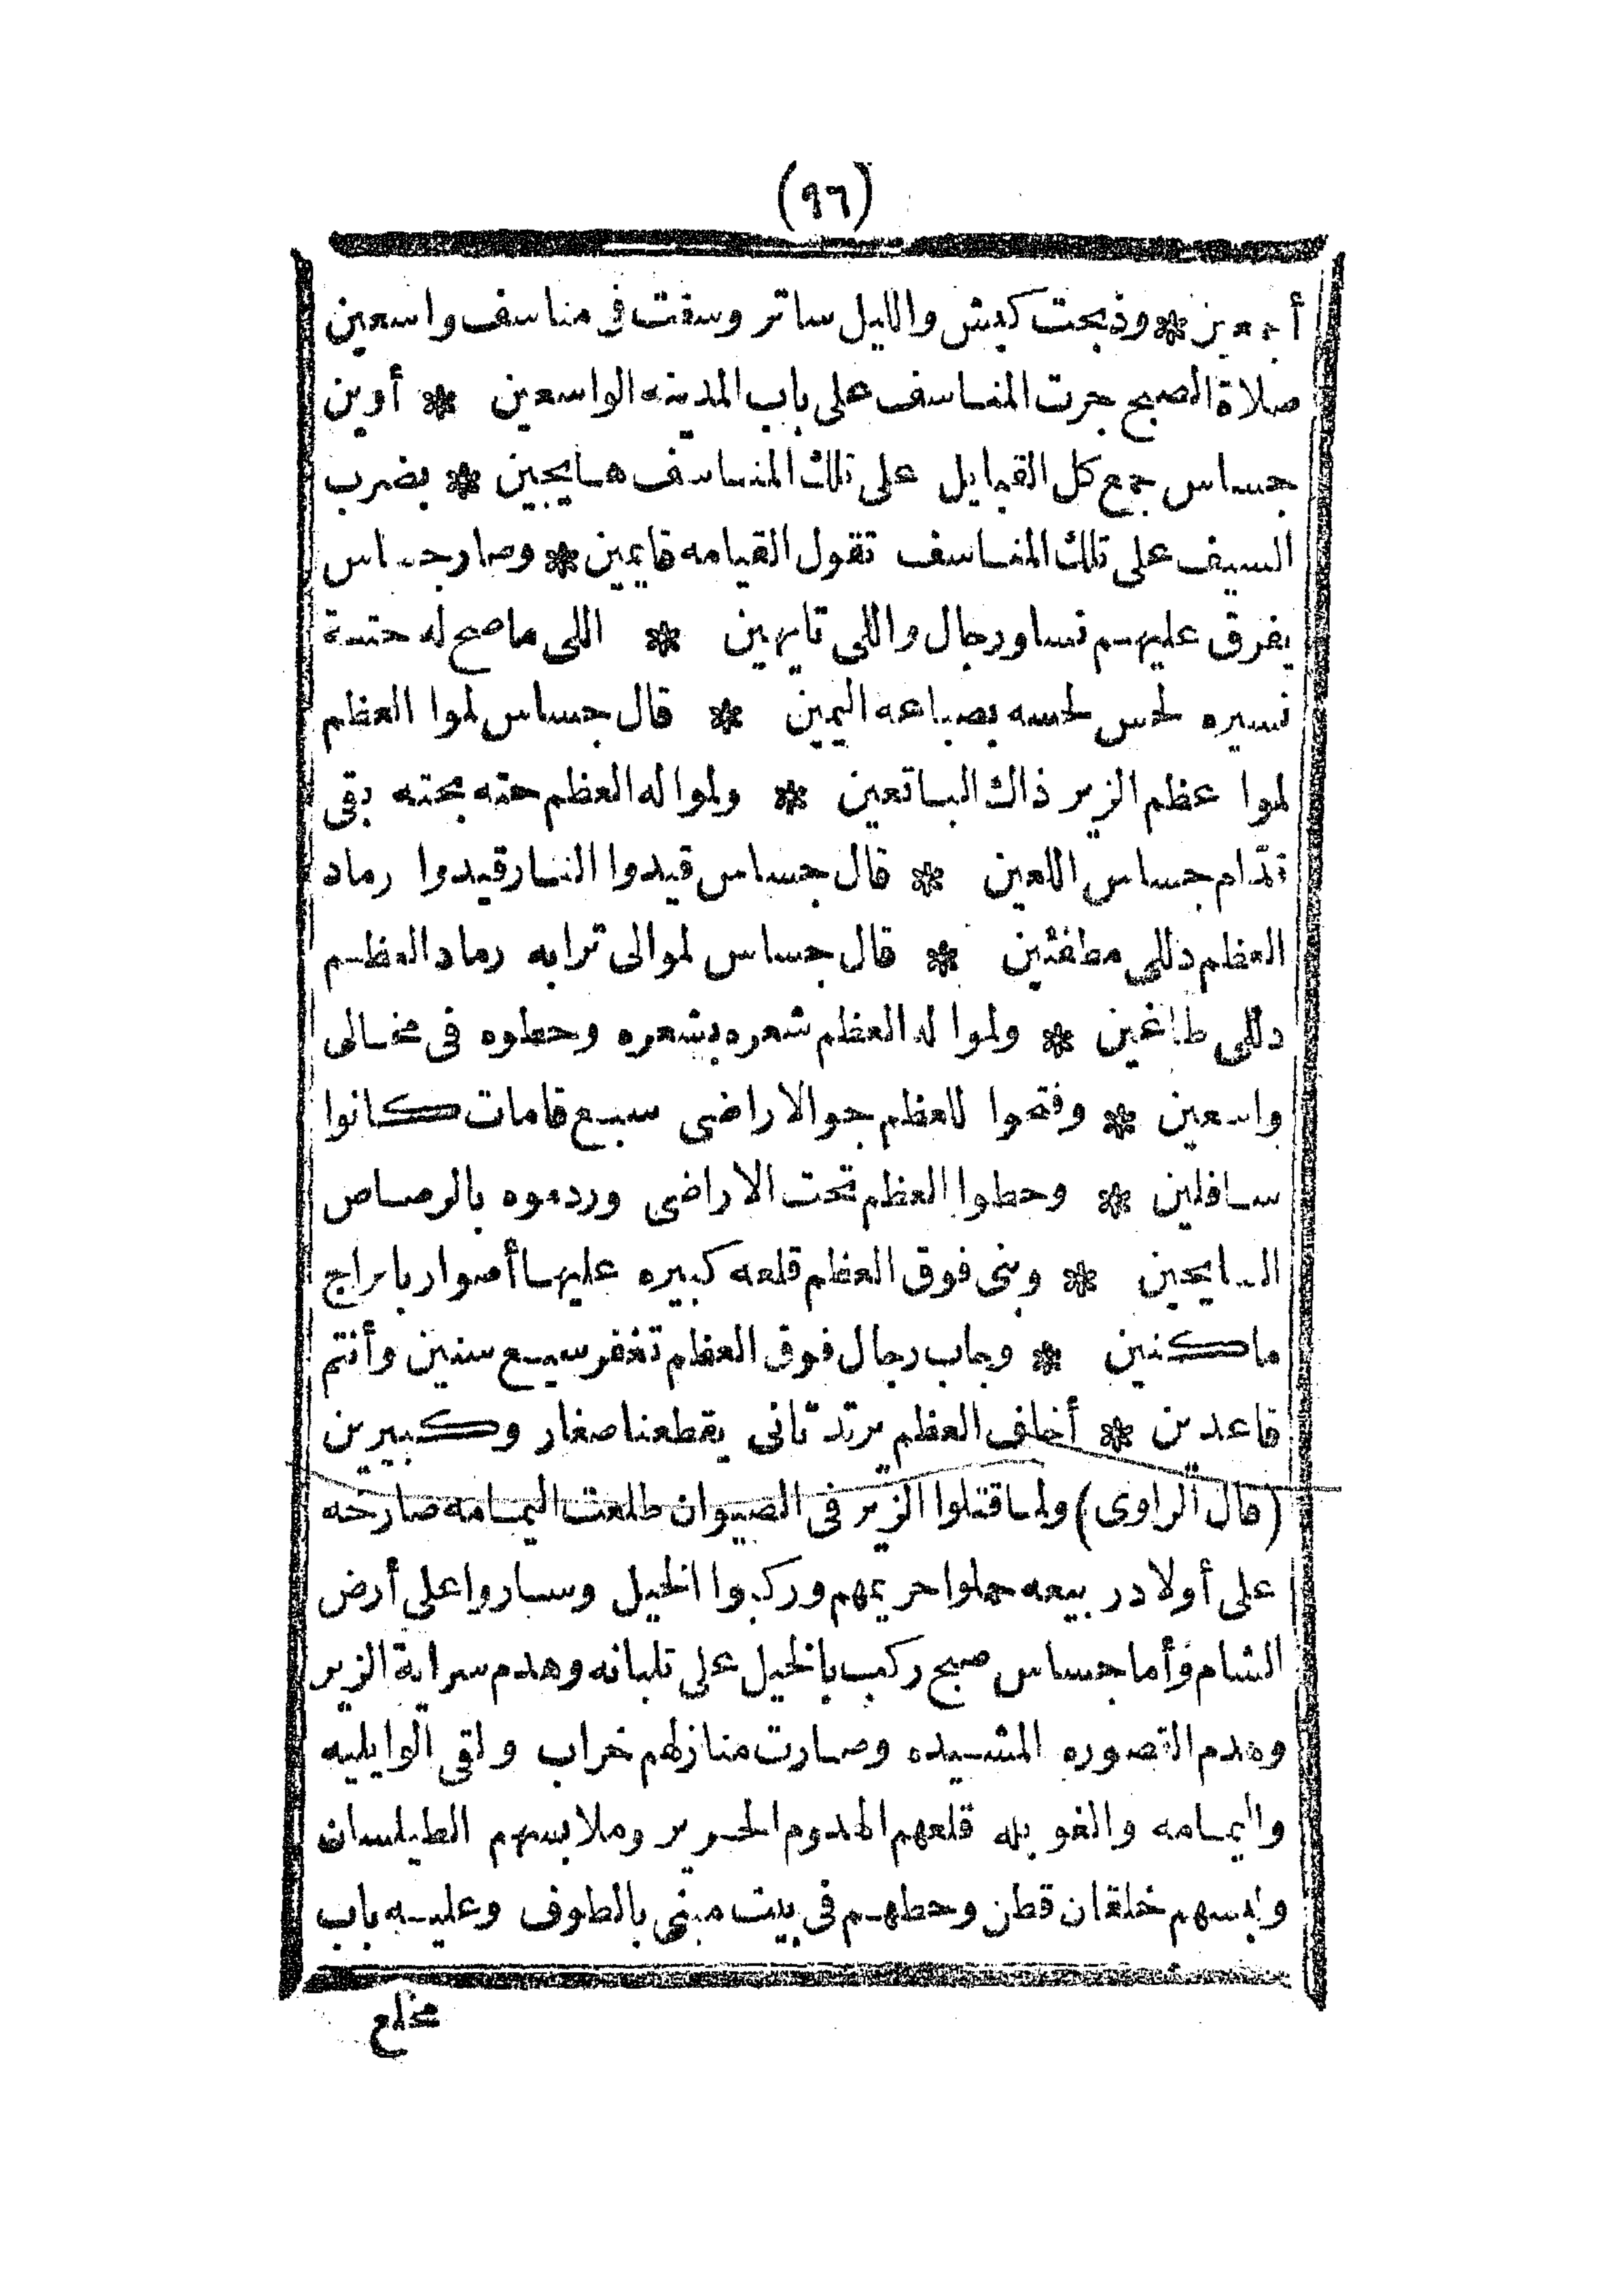 (٩٦)
أجمعين * وذبحت كبش والليل ساتر وسفت في مناسف واسعين
صلاة الصبح جرت المناسف على باب المدينه الواسعين * أوين
جساس جمع كل القبايل على تلك المناسف هايجين * بضرب
السيف على تلك المناسف تقول القيامه قايمين * وصار جساس
يفرق عليهم نسا ورجال واللى تايهين * اللى ماصح له حتة
نسيره لحس لحسه بصباعه اليمين * قال جساس لموا العظم
لموا عظم الزير ذاك الباتعين * ولمواله العظم حته بحته بقى
قدّام جساس اللعين * قال جساس قيدوا النار قيدوا رماد
العظم دللى مطفئين * قال جساس لموالى ترابه رماد العظم
دللى طاغين * ولموا له العظم شعره بشعره وحطوه فى مخالى
واسعين * وفتحوا للعظم جوالاراضى سبع قامات كانوا
سافلين * وحطوا العظم تحت الاراضى وردموه بالرصاص
السايحين * وبنى فوق العظم قلعه كبيره عليها أصوار بابراج
ماكنين * وجاب رجال فوق العظم تغفر سبع سنين وأنتم
قاعدين * أخاف العظم يرتد تانى يقطعنا صغار وكبيرين
(قال الراوى) ولما قتلوا الزير فى الصيوان طلعت اليمامه صارخه
على أولاد ربيعه حملوا حريمهم وركبوا الخيل وساروا على أرض
الشام وأما جساس صبح ركب بالخيل على تلبانه وهدم سراية الزير
وهدم القصوره المشيده وصارت منازلهم خراب ولقى الوايليه
واليمامه والغوبله قلعهم الهدوم الحرير وملابسهم الطيلسان
ولبسهم خلقان قطن وحطهم فى بيت مبنى بالطوف وعليه باب
مخلع